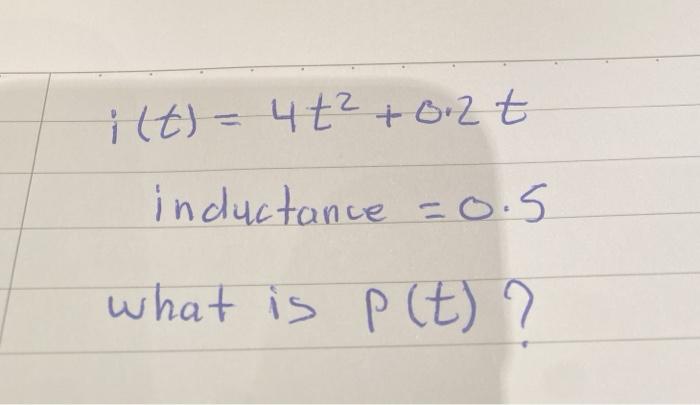 i(t) = 4t² + 0.2t
inductance = 0.5
what is p(t)?